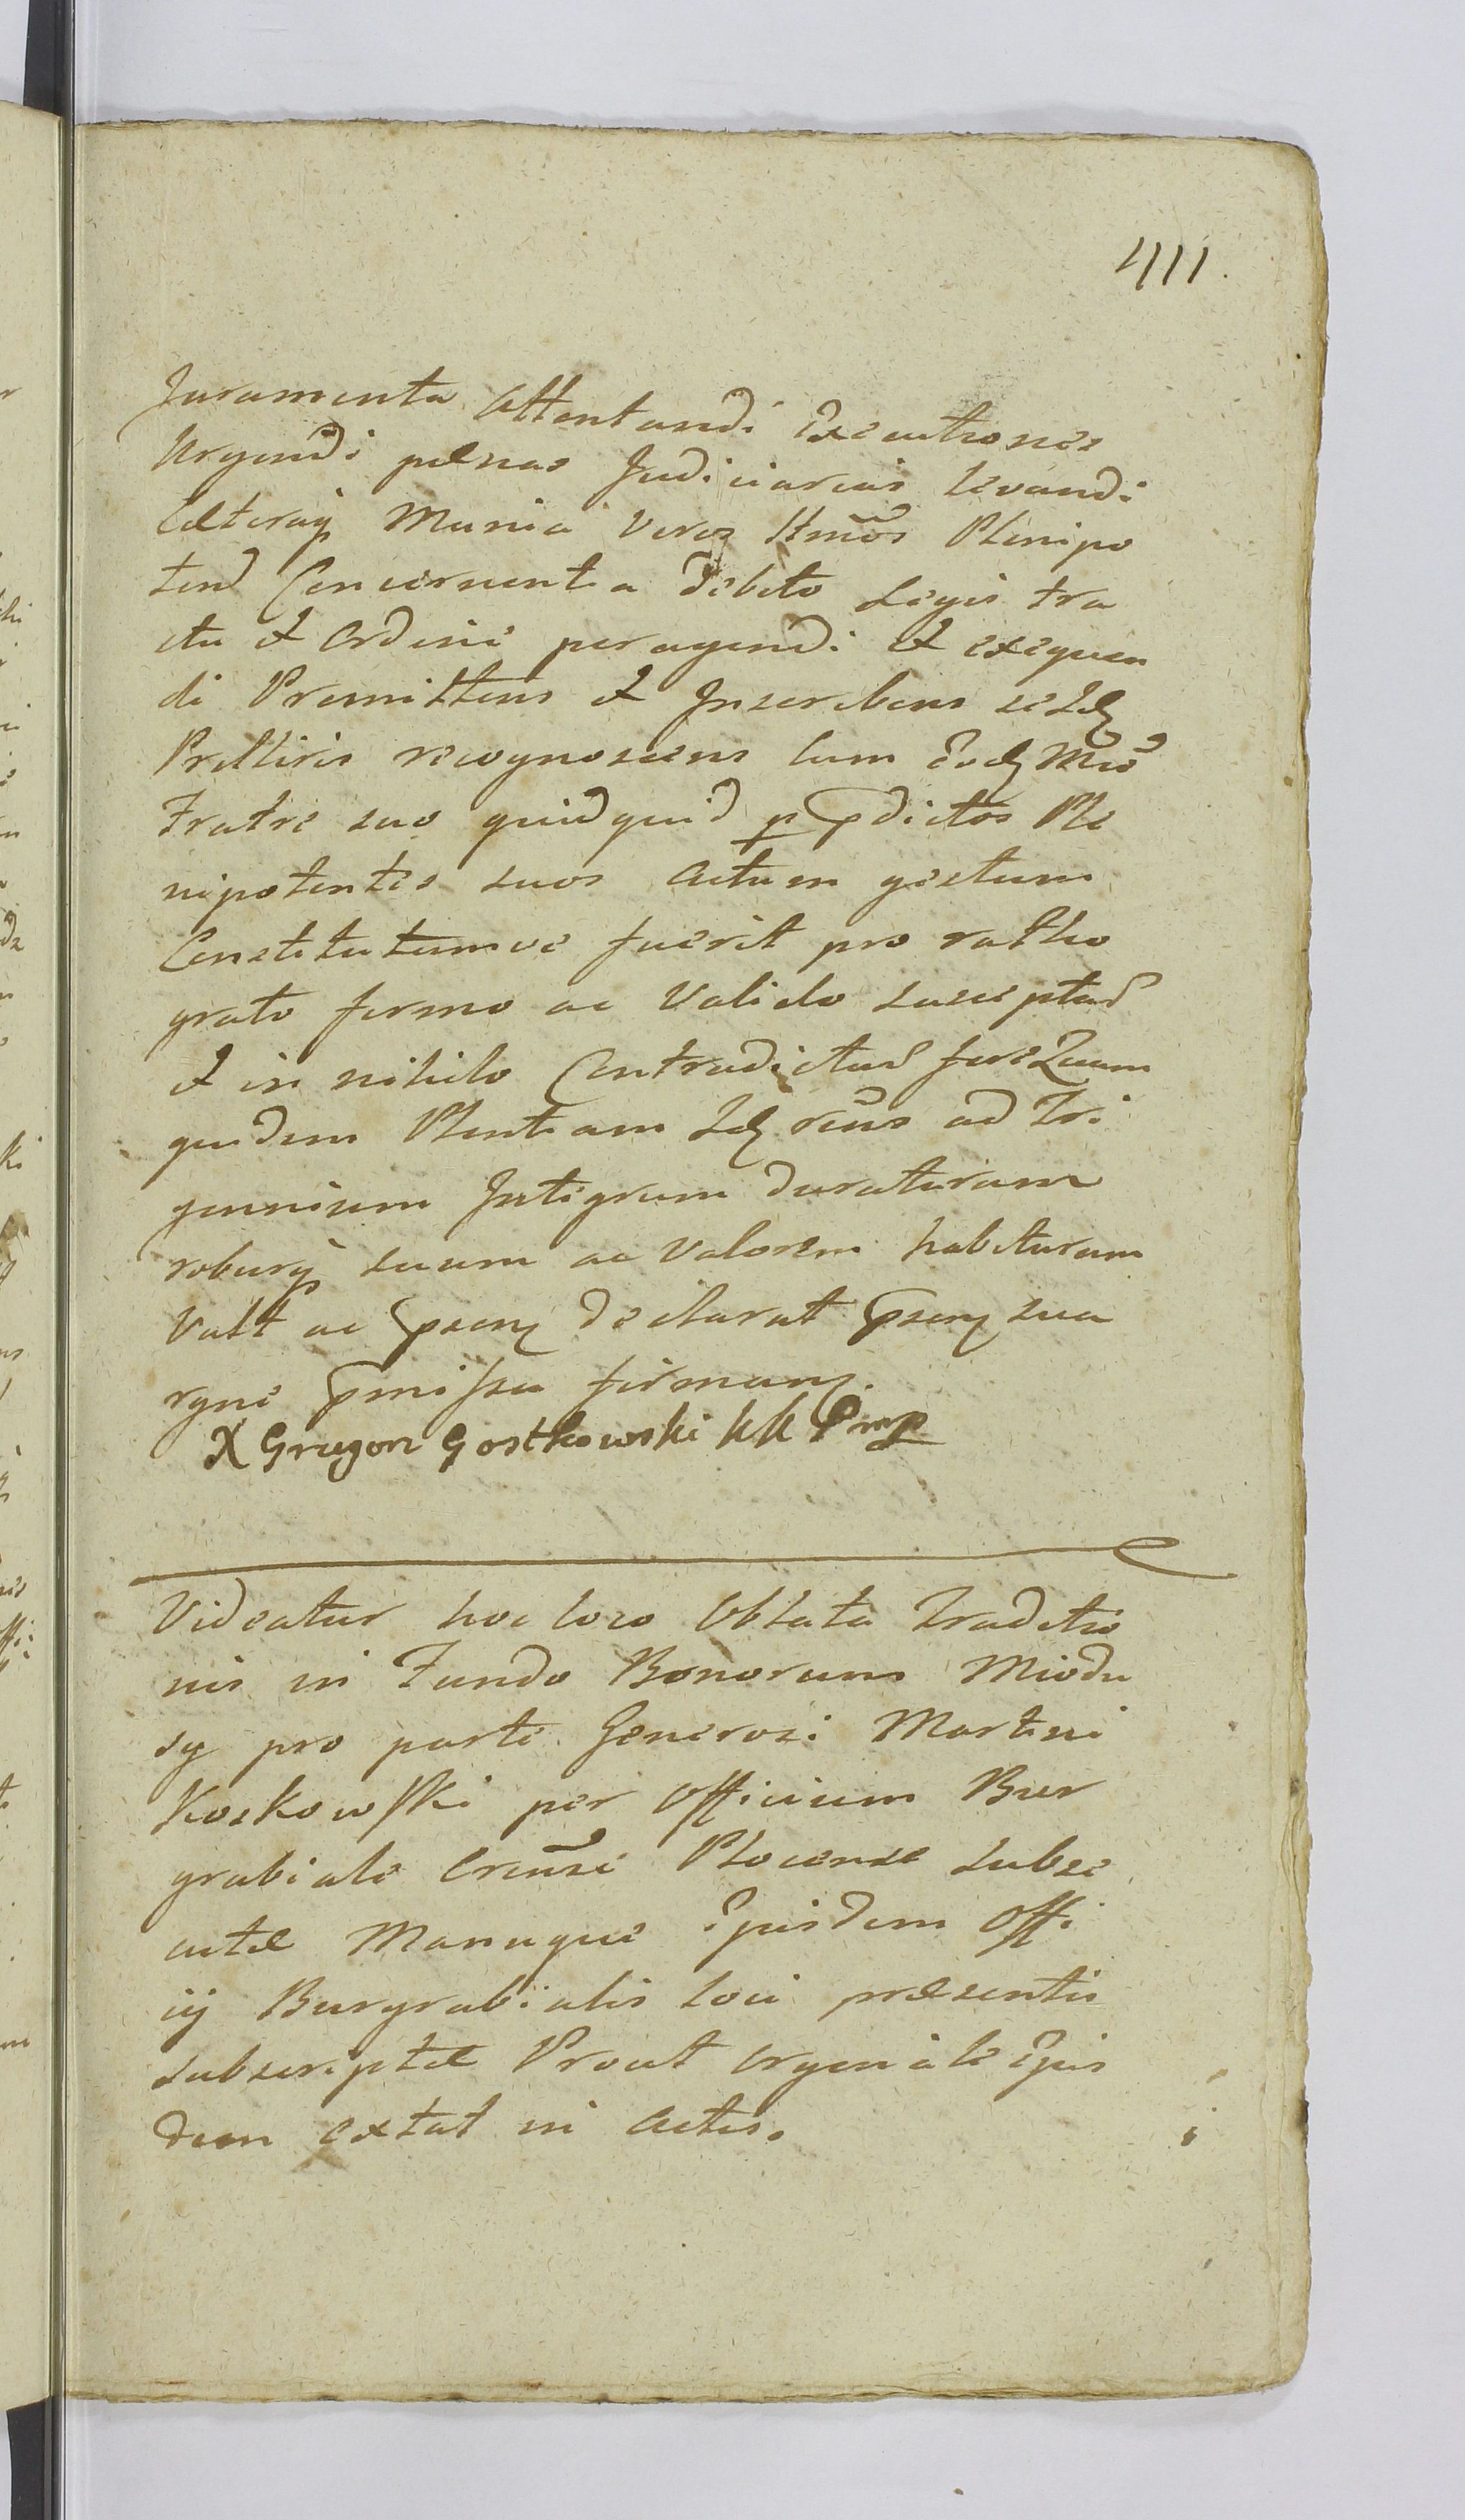 411.
Juramenta Attentandi Executiones
Urgendi pænas Judiciarias levandi
Cæteraq Munia veros ltmos Plenipo
tend Concernentia debito Legis tra
ctu et Ordine peragendi et exequen
di Promittens et Inscribens
recognoscens Cum
Fratre suo quidquid p pdictos Ple
nipotentes suos Actum gestum
Constitutumve fuerit pro ratho
grato firmo ac Valido susceptur
et in nihilo Contradictur
quidem Plentiam ad Tri
gennium Integrum duraturam
roburq suum ac Valorem habituram
Vult ac declarat sua
pmissa firman
X Grzegorz Gostkowski KK Pmp
Videatur hoc loco Oblata Traditio
nis in Fundo Bonorum Miodu
sy pro parte Generosi Martini
Koskowski per Officium Bur
grabiale Crense Plocense subse
cutæ Manuque Ejusdem Offi
cij Burgrabialis loci præsentis
subscriptæ Prout Orygenale Ejus
dem extat in Actis.